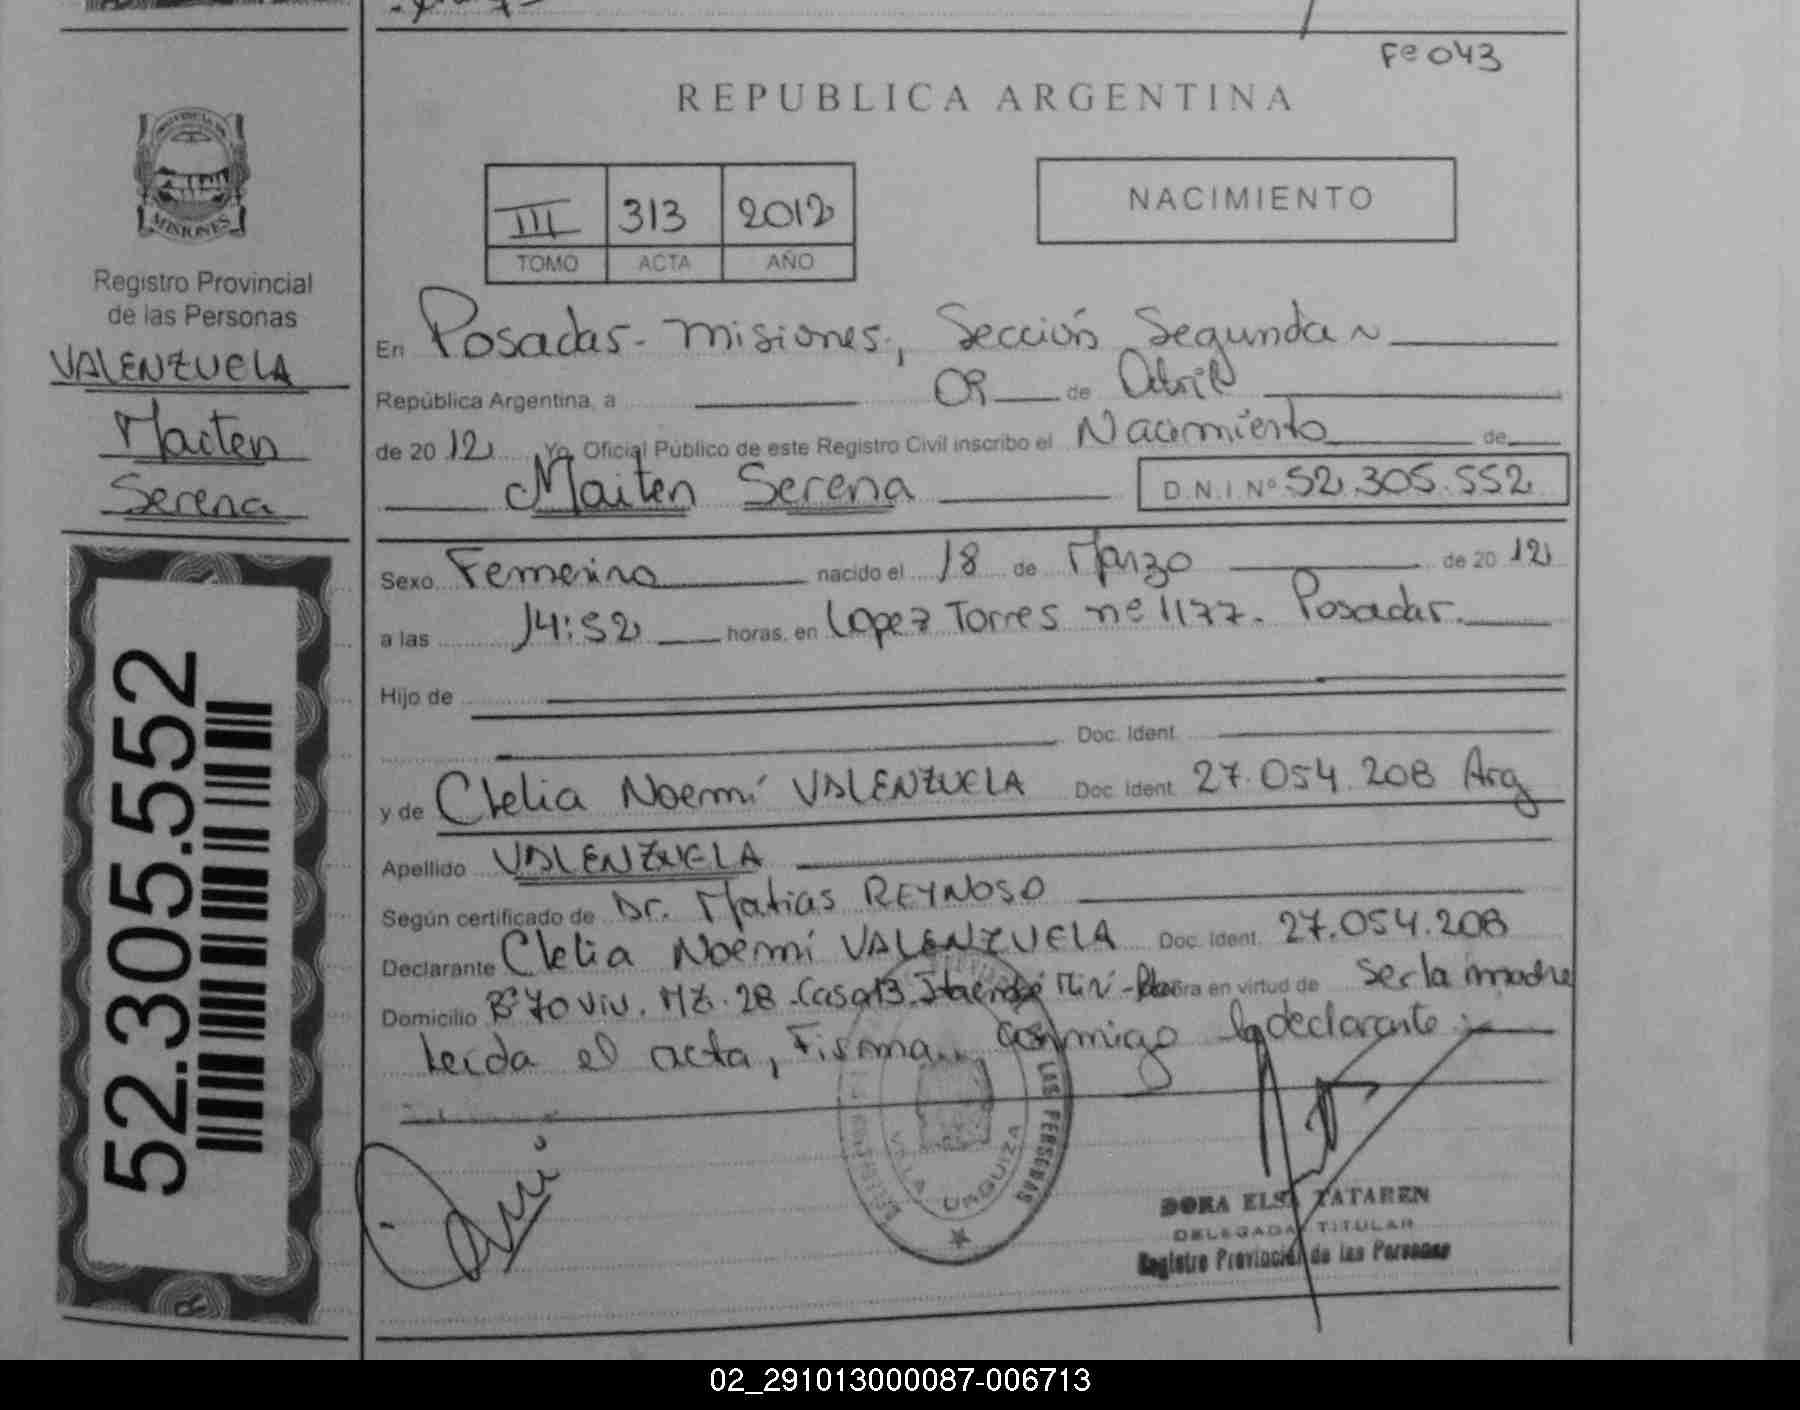 Fe 043
REPUBLICA ARGENTINA
PROVINCIA DE
MISIONES
Registro Provincial
de las Personas
VALENZUELA
Maiten
Serena
52.305.552
III 313 2012
TOMO ACTA AÑO
NACIMIENTO
En Posadas - Misiones, Sección Segunda
República Argentina, a 09 de Abril
de 2012 Yo Oficial Público de este Registro Civil inscribo el Nacimiento de
Maiten Serena D.N.I Nº 52.305.552
Sexo Femenino nacido el 18 de Marzo de 2012
a las 14:52 horas, en Lopez Torres nº 1177. Posadas.
Hijo de
Doc. Ident.
y de Clelia Noemí VALENZUELA Doc. Ident. 27.054.208 Arg
Apellido VALENZUELA
Según certificado de Dr. Matias REYNOSO
Declarante Clelia Noemí VALENZUELA Doc. Ident. 27.054.208
Domicilio Bº 70 Viv. MZ. 28 - Casa 13. Itaembé Miní - obra en virtud de ser la madre
Leída el acta, Firma conmigo la declarante
LAS PERSONAS
VILLA URQUIZA
DORA ELSA TATAREN
DELEGADA TITULAR
Registro Provincial de las Personas
02_291013000087-006713